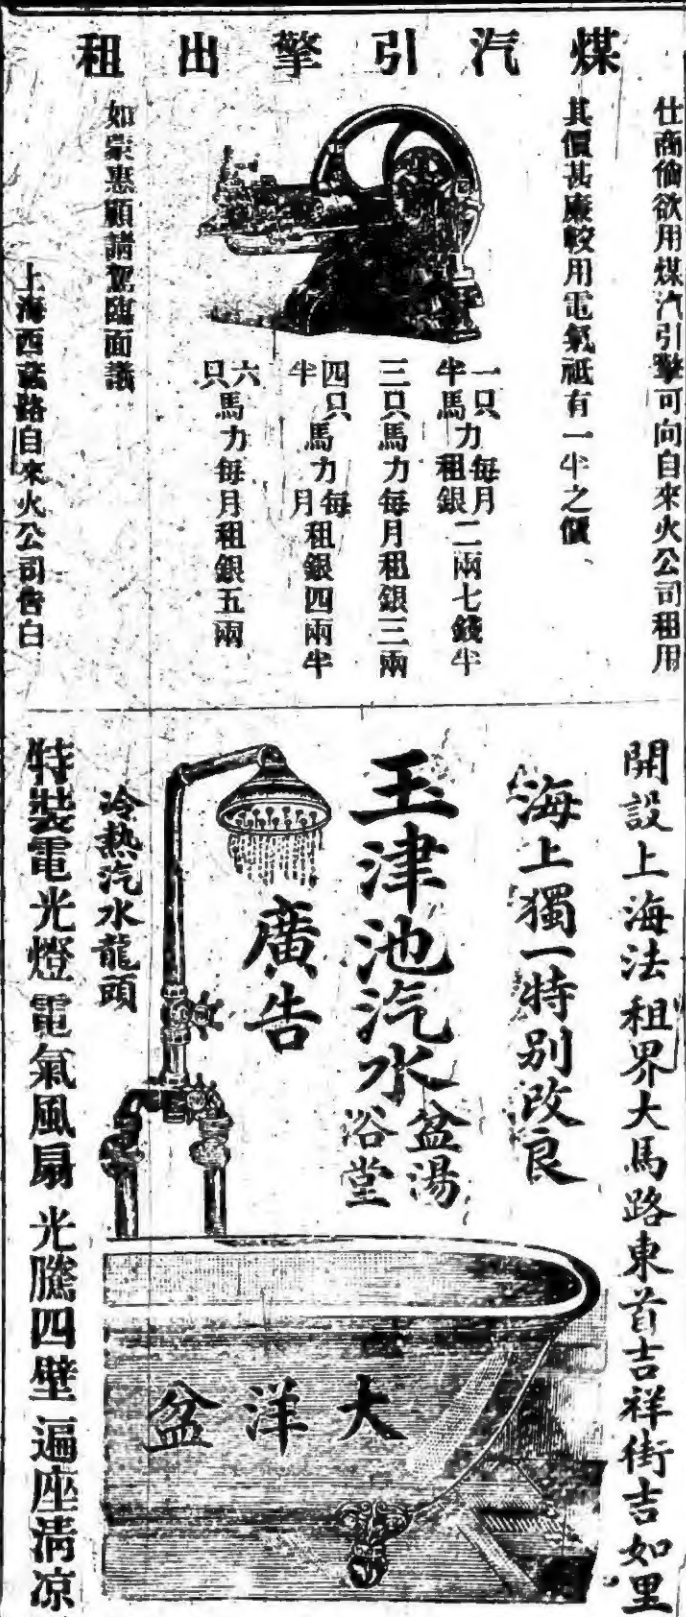 煤汽引擎出租
仕商倘欲用煤汽引擎可向自來火公司租用
其價甚廉較用電氣祗有一半之價、
一只半馬力每月租銀二兩七錢半
三只馬力每月租銀三兩
四只半馬力每月租銀四兩半
六只馬力每月租銀五兩
如蒙惠顧請駕臨面議
上海西藏路自來火公司告白
開設上海法租界大馬路東首吉祥街吉如里
海上獨一特別改良
玉津池汽水盆湯浴堂
廣告
冷熱汽水龍頭
大洋盆
特裝電光燈電氣風扇光騰四壁遍座清凉